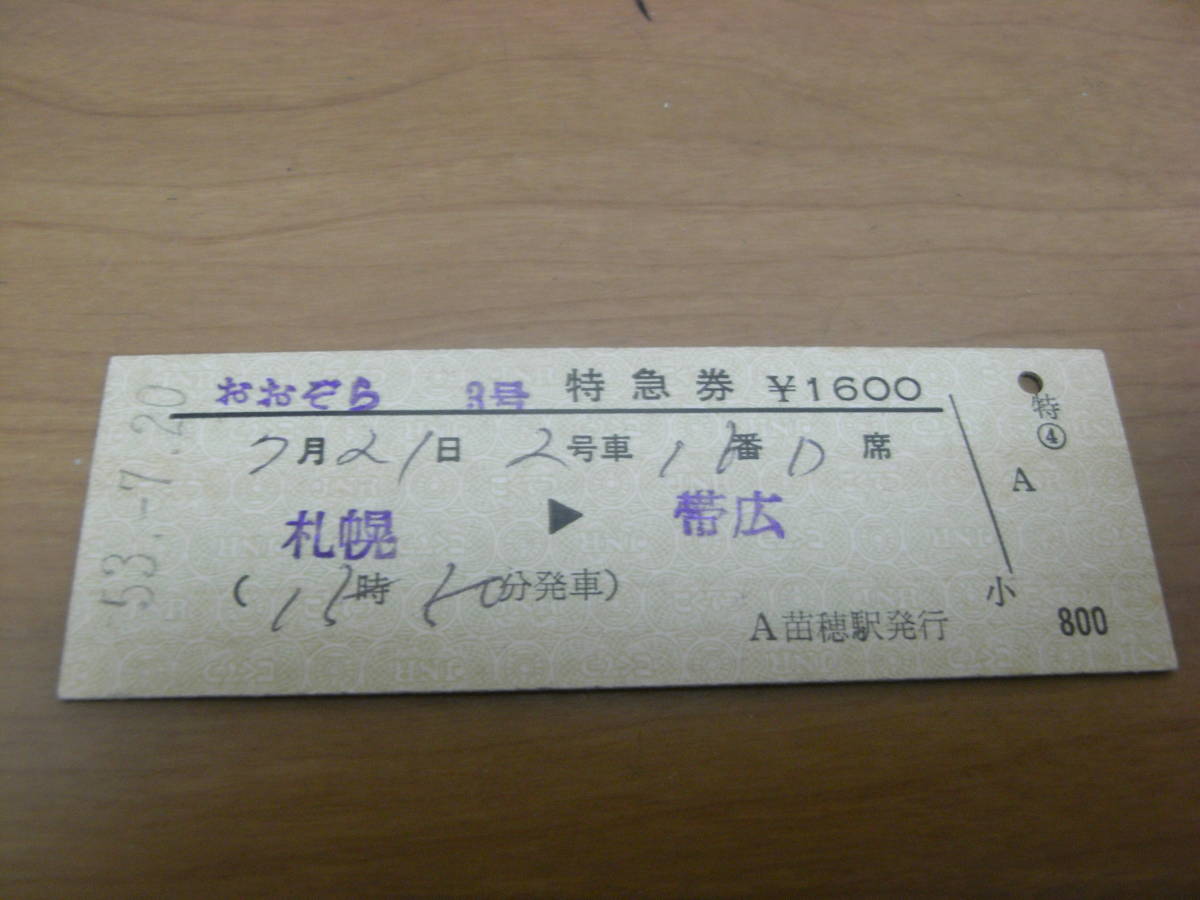 53.-7.20
おおぞら 3号 特急券 ¥1600
7月21日 2号車 16番 D席
札幌 ▶ 帯広
( 時 分発車)
A苗穂駅発行
特
④
A
小
800